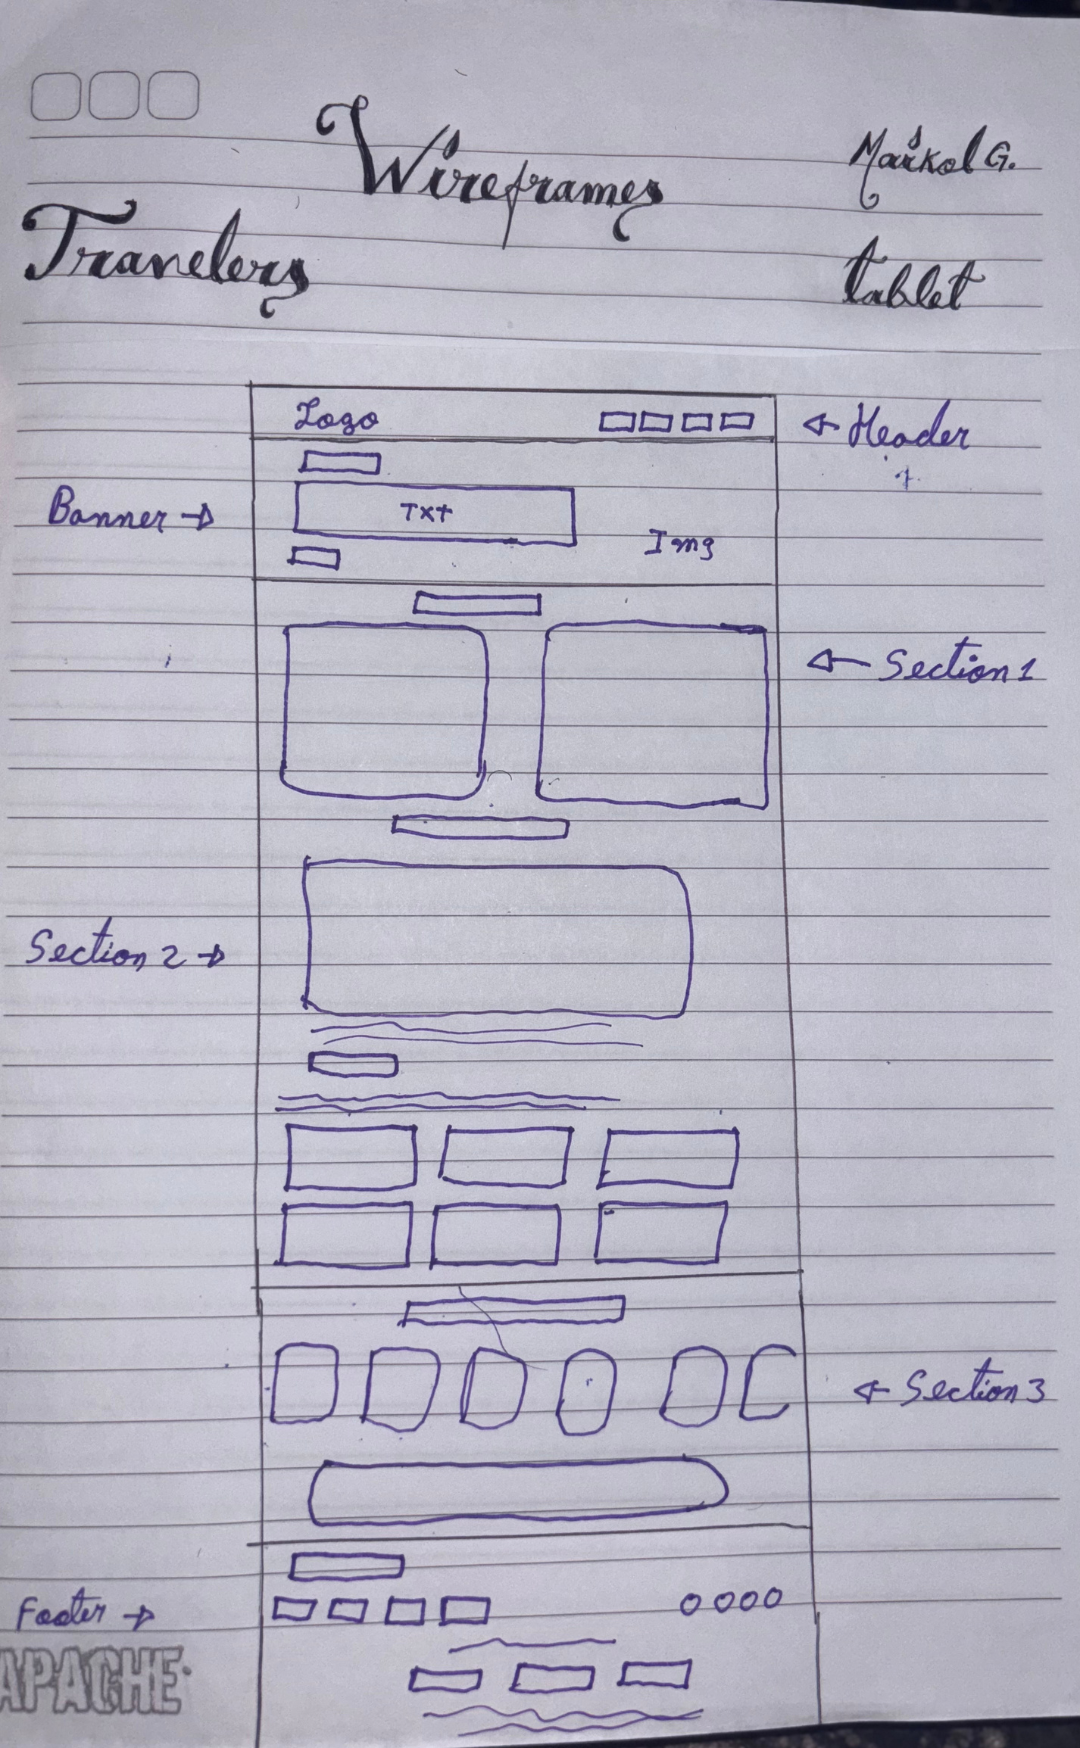 Wireframes
Maikol G.
Travelers
tablet
Logo
← Header
Banner →
Txt
Img
← Section 1
Section 2 →
← Section 3
Footer →
APACHE